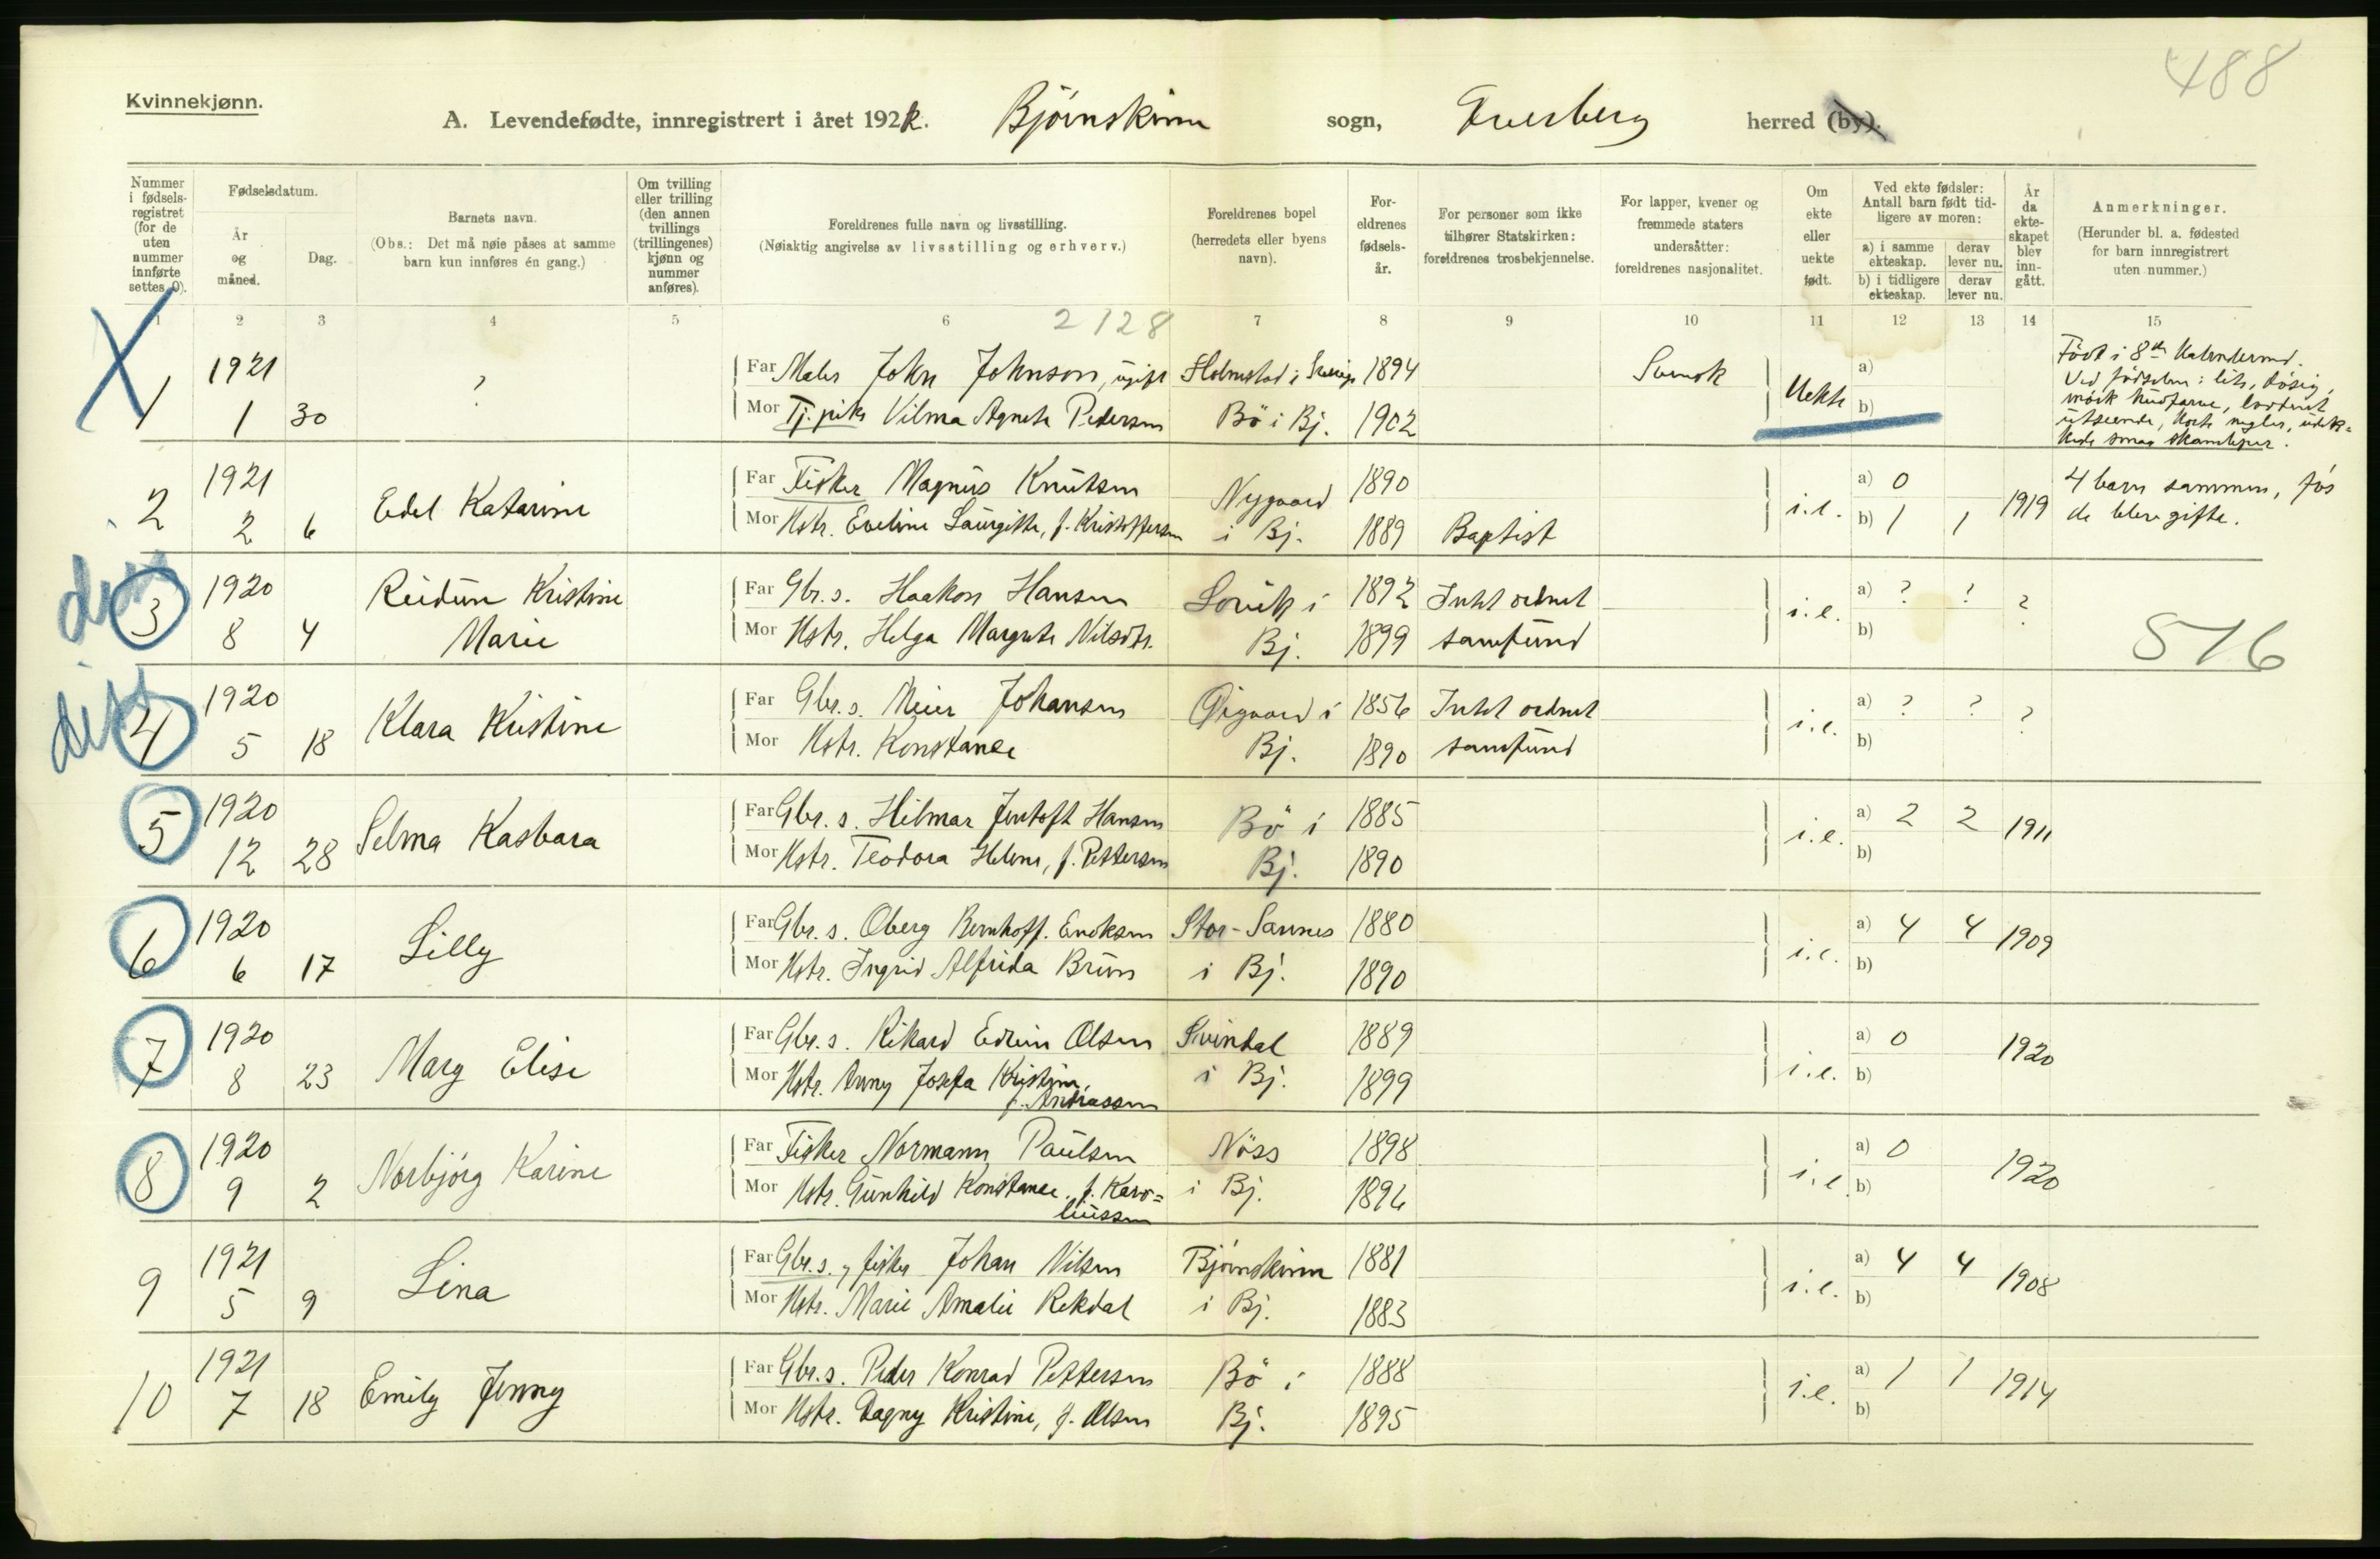 488
Kvinnekjønn.
A. Levendefødte, innregistrert i året 192 Bjørnskinn sogn, herred (by).
Nummer i fødsels-registret (for de uten nummer innførte settes 0).
Fødselsdatum.
År og måned.
Dag.
Barnets navn.
(Obs.: Det må nøie påses at samme barn kun innføres én gang.)
Om tvilling eller trilling (den annen tvillings (trillingenes) kjønn og nummer anføres).
Foreldrenes fulle navn og livsstilling.
(Nøiaktig angivelse av livsstilling og erhverv.)
Foreldrenes bopel (herredets eller byens navn).
For-eldrenes fødsels-år.
For personer som ikke tilhører Statskirken: foreldrenes trosbekjennelse.
For lapper, kvener og fremmede staters undersåtter: foreldrenes nasjonalitet.
Om ekte eller uekte født.
Ved ekte fødsler: Antall barn født tid-ligere av moren:
a) i samme ekteskap.
derav lever nu.
b) i tidligere ekteskap.
derav lever nu.
År da ekte-skapet blev inn-gått.
Anmerkninger.
(Herunder bl. a. fødested for barn innregistrert uten nummer.)
1 2 3 4 5 6 2128 7 8 9 10 11 12 13 14 15
1921 ? Far Maler John Johnson, ugift i Sverige 1894 Svensk Uekte a)
1 1 30 Mor Tj. pike Vilma Agnete Pedersen Bö i Bj. 1902 b)
Född i 8de Kalendermd.
Ved födselen: liten, dösig,
mörk hudfarve,
utseende, korte negler,
1921 Far Fisker Magnus Knutsen Nygaard 1890 a) 0 4 barn sammen, för
2 2 6 Edel Katarine Mor Hstr. Eveline Laurgitte, f. Kristoffersen i Bj. 1889 Baptist i.e. b) 1 1 1919 de blev gifte.
3 1920 Reidun Kristine Far Gbr.s. Haakon Hansen i 1892 Intet ordnet i.e. a) ? ? ?
8 4 Marie Mor Hstr. Helga Margrete Nilsdtr. Bj. 1899 samfund b)
516
4 1920 Klara Kristine Far Gbr.s. Meier Johansen Öigaard i 1856 Intet ordnet i.e. a) ? ? ?
5 18 Mor Hstr. Konstance Bj. 1890 samfund b)
5 1920 Selma Kasbara Far Gbr. s. Hilmar Jentoft Hansen Bö i 1885 i.e. a) 2 2 1911
12 28 Mor Hstr. Teodora Helene, f. Pettersen Bj. 1890 b)
6 1920 Lilly Far Gbr. s. Oberg Bernhoff. Enoksen Stor-Sannes 1880 i.e. a) 4 4 1909
6 17 Mor Hstr. Ingrid Alfrida Brun i Bj. 1890 b)
7 1920 Marg Elise Far Gbr. s. Rikard Edvin Olsen Svindal 1889 i.e. a) 0 1920
8 23 Mor Hstr. Anny Josefa Kristine, i Bj. 1899 b)
f. Andreassen
8 1920 Norbjörg Karine Far Fisker Normann Paulsen Nöss 1898 i.e. a) 0 1920
9 2 Mor Hstr. Gunhild Konstance, f. Karo= i Bj. 1896 b)
liussen
9 1921 Lina Far Gbr. s., fisker Johan Nilsen Bjørnskinn 1881 i.e. a) 4 4 1908
5 9 Mor Hstr. Marie Amalie Rekdal i Bj. 1883 b)
10 1921 Emily Jenny Far Gbr.s. Peder Konrad Pettersen Bö i 1888 i.e. a) 1 1 1914
7 18 Mor Hstr. Dagny Kristine, f. Olsen Bj. 1895 b)